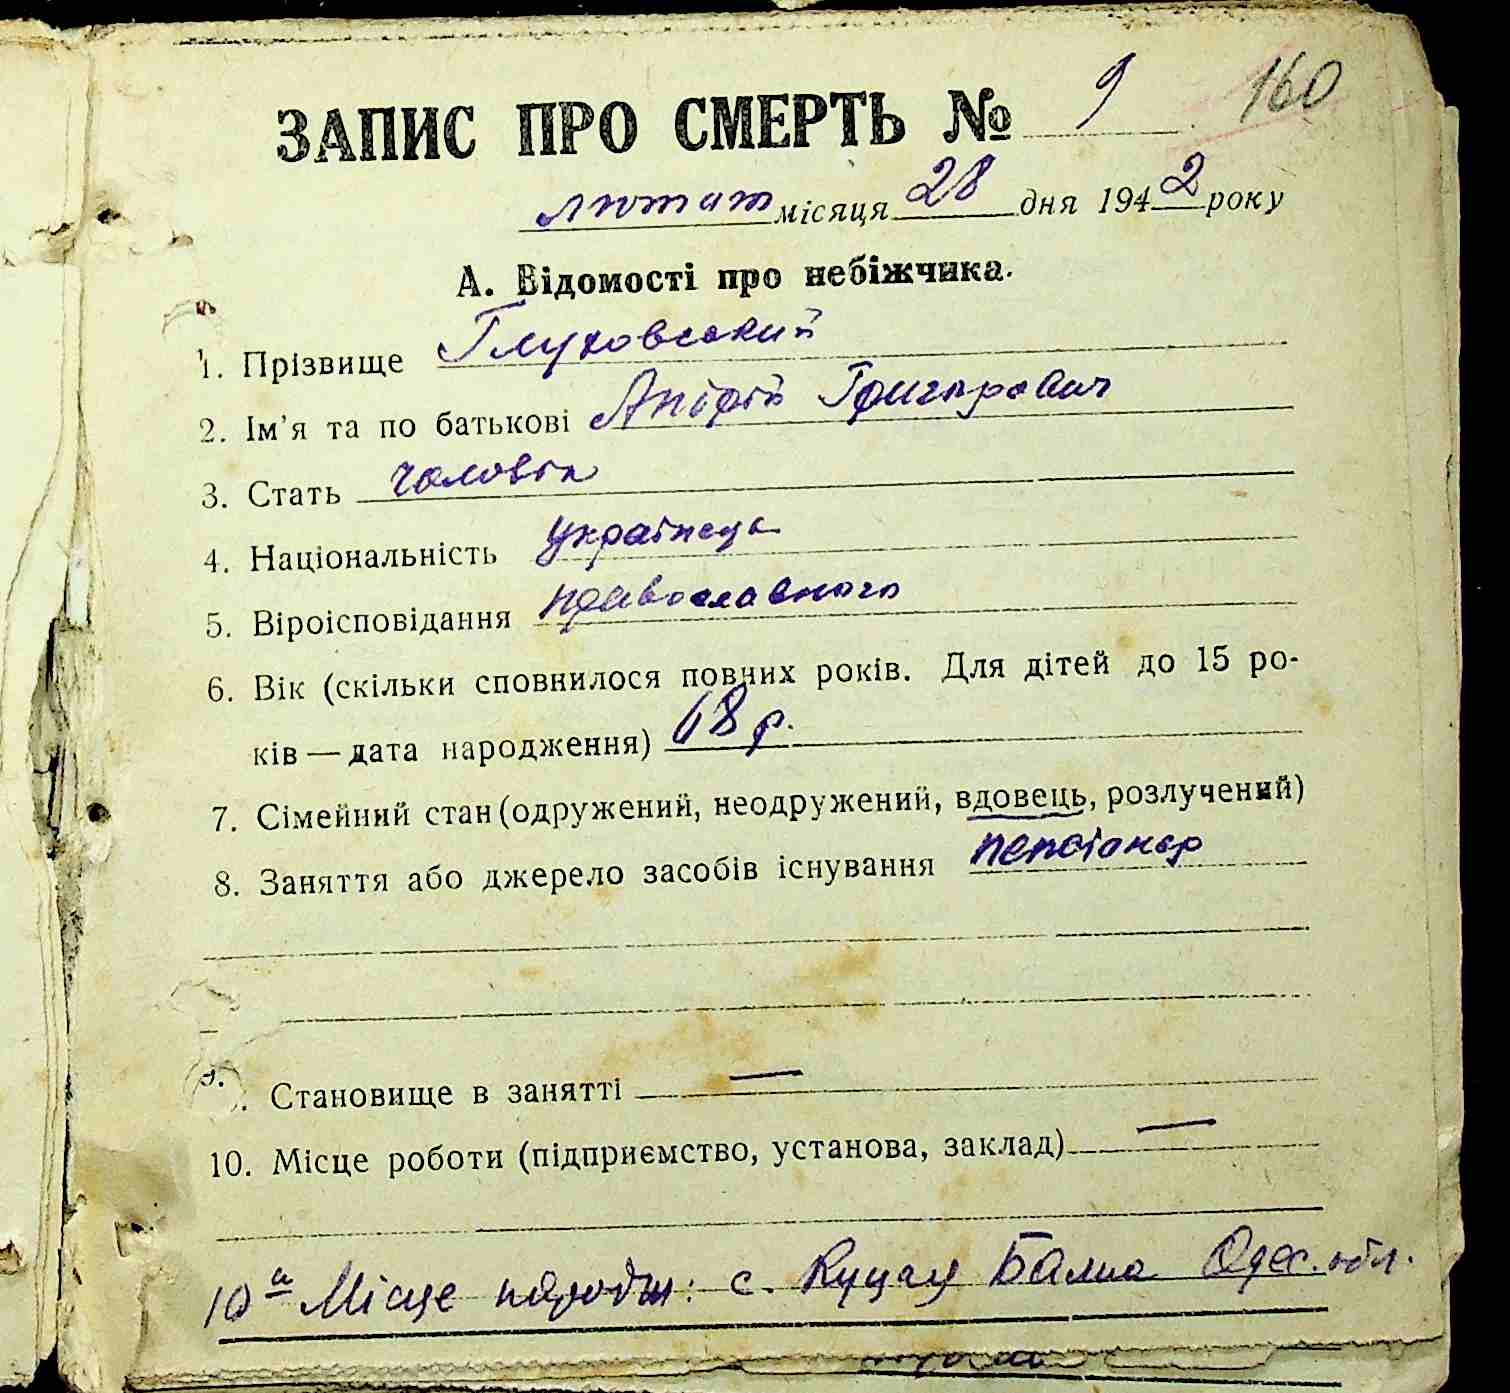 160
ЗАПИС ПРО СМЕРТЬ № 9
лютат місяця 28 дня 1942 року
А. Відомості про небіжчика.
1. Прізвище Глуховський
2. Ім'я та по батькові Григорович
3. Стать чоловік
4. Національність українець
5. Віроісповідання православного
6. Вік (скільки сповнилося повних років. Для дітей до 15 ро-
ків — дата народження) 68 р.
7. Сімейний стан (одружений, неодружений, вдовець, розлучений)
8. Заняття або джерело засобів існування пенсіонер
9. Становище в занятті —
10. Місце роботи (підприємство, установа, заклад) —
10а Місце народж: с. Куцая Балка Одес. обл.